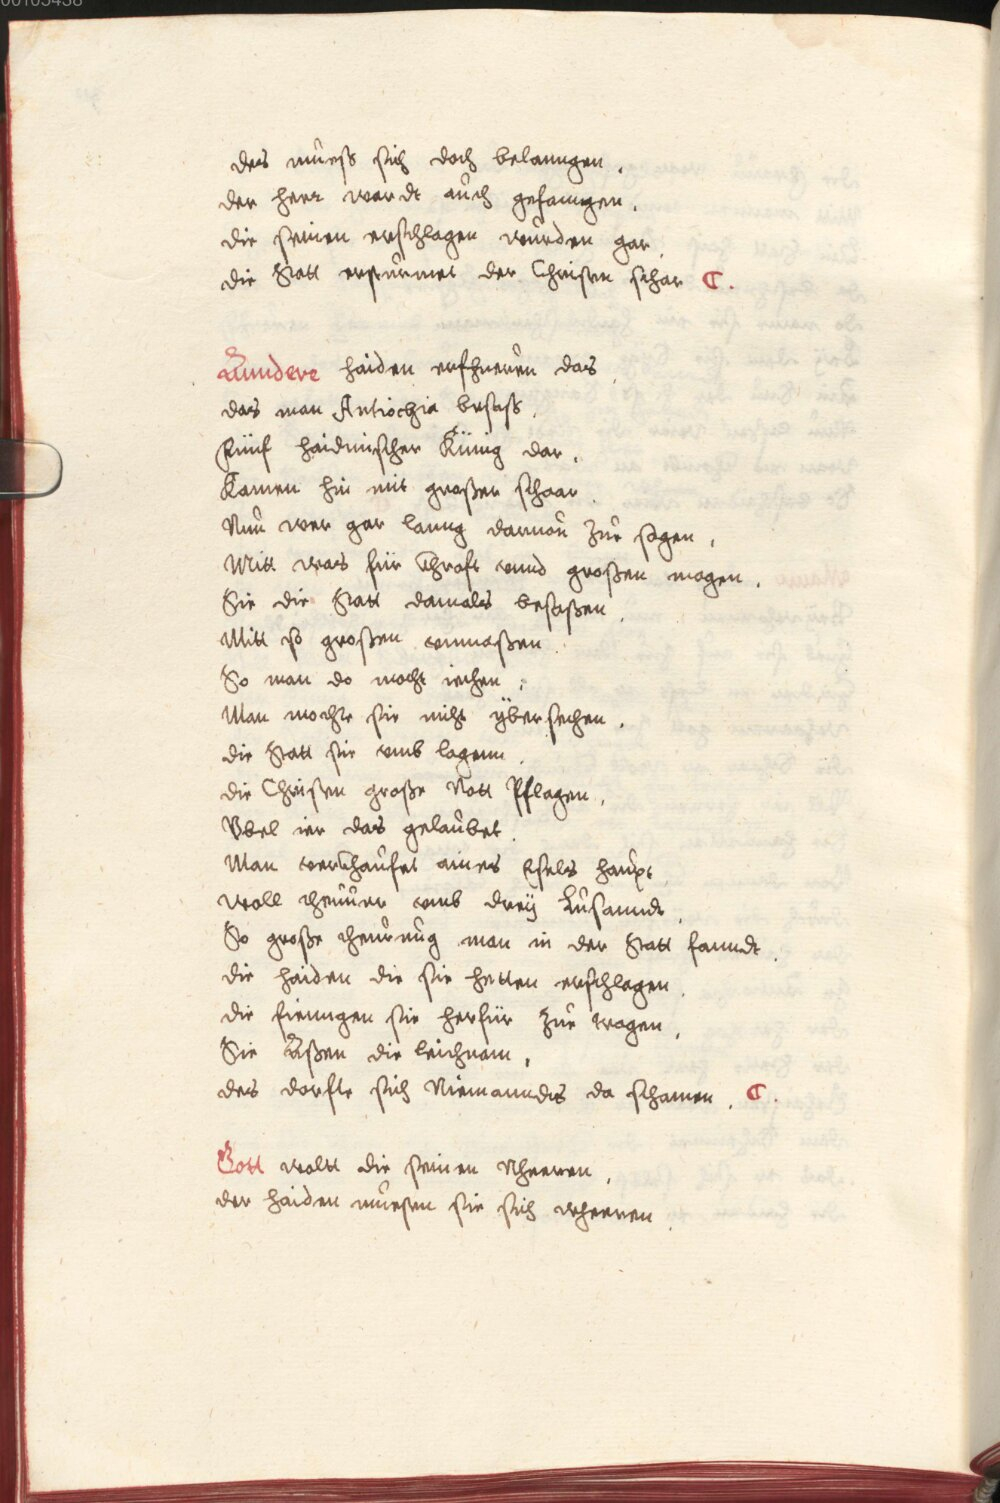 00103438
des muess sich doch belanngen .
der herr wardt auch gefanngen .
die seinen erschlagen wurden gar
die Statt erstürmet der Christen schar C .
Aundere haiden erfhueren das
das man Antiochia besass .
Fünf haidnischer Künig dar .
Kamen hin mit großer schaar .
Nun wer gar lanng daruon zue sagen ,
Mitt was für Chraft vnnd großen magen .
Sie die Statt damals besaßen .
Mitt so großen vnmaßen
So man do mocht iechen ,
Man mochte sie nicht übersechen .
die Statt sie vmb lagenn .
die Christen große Nott Pflagen .
Vbel ier das gelaubet .
Man verkhaufet aines Esels haupt
woll theuuer vmb dreÿ Tusanndt .
So große theurung man in der Statt fanndt .
die haiden die sie hetten erschlagen .
die fienngen sie herfür zue tragen .
Sie Aßen die leichnam ,
des dorfte sich Niemanndts da schamen . C .
Gott wolt die seinen Nheeren ,
der haiden muesten sie sich wheeren